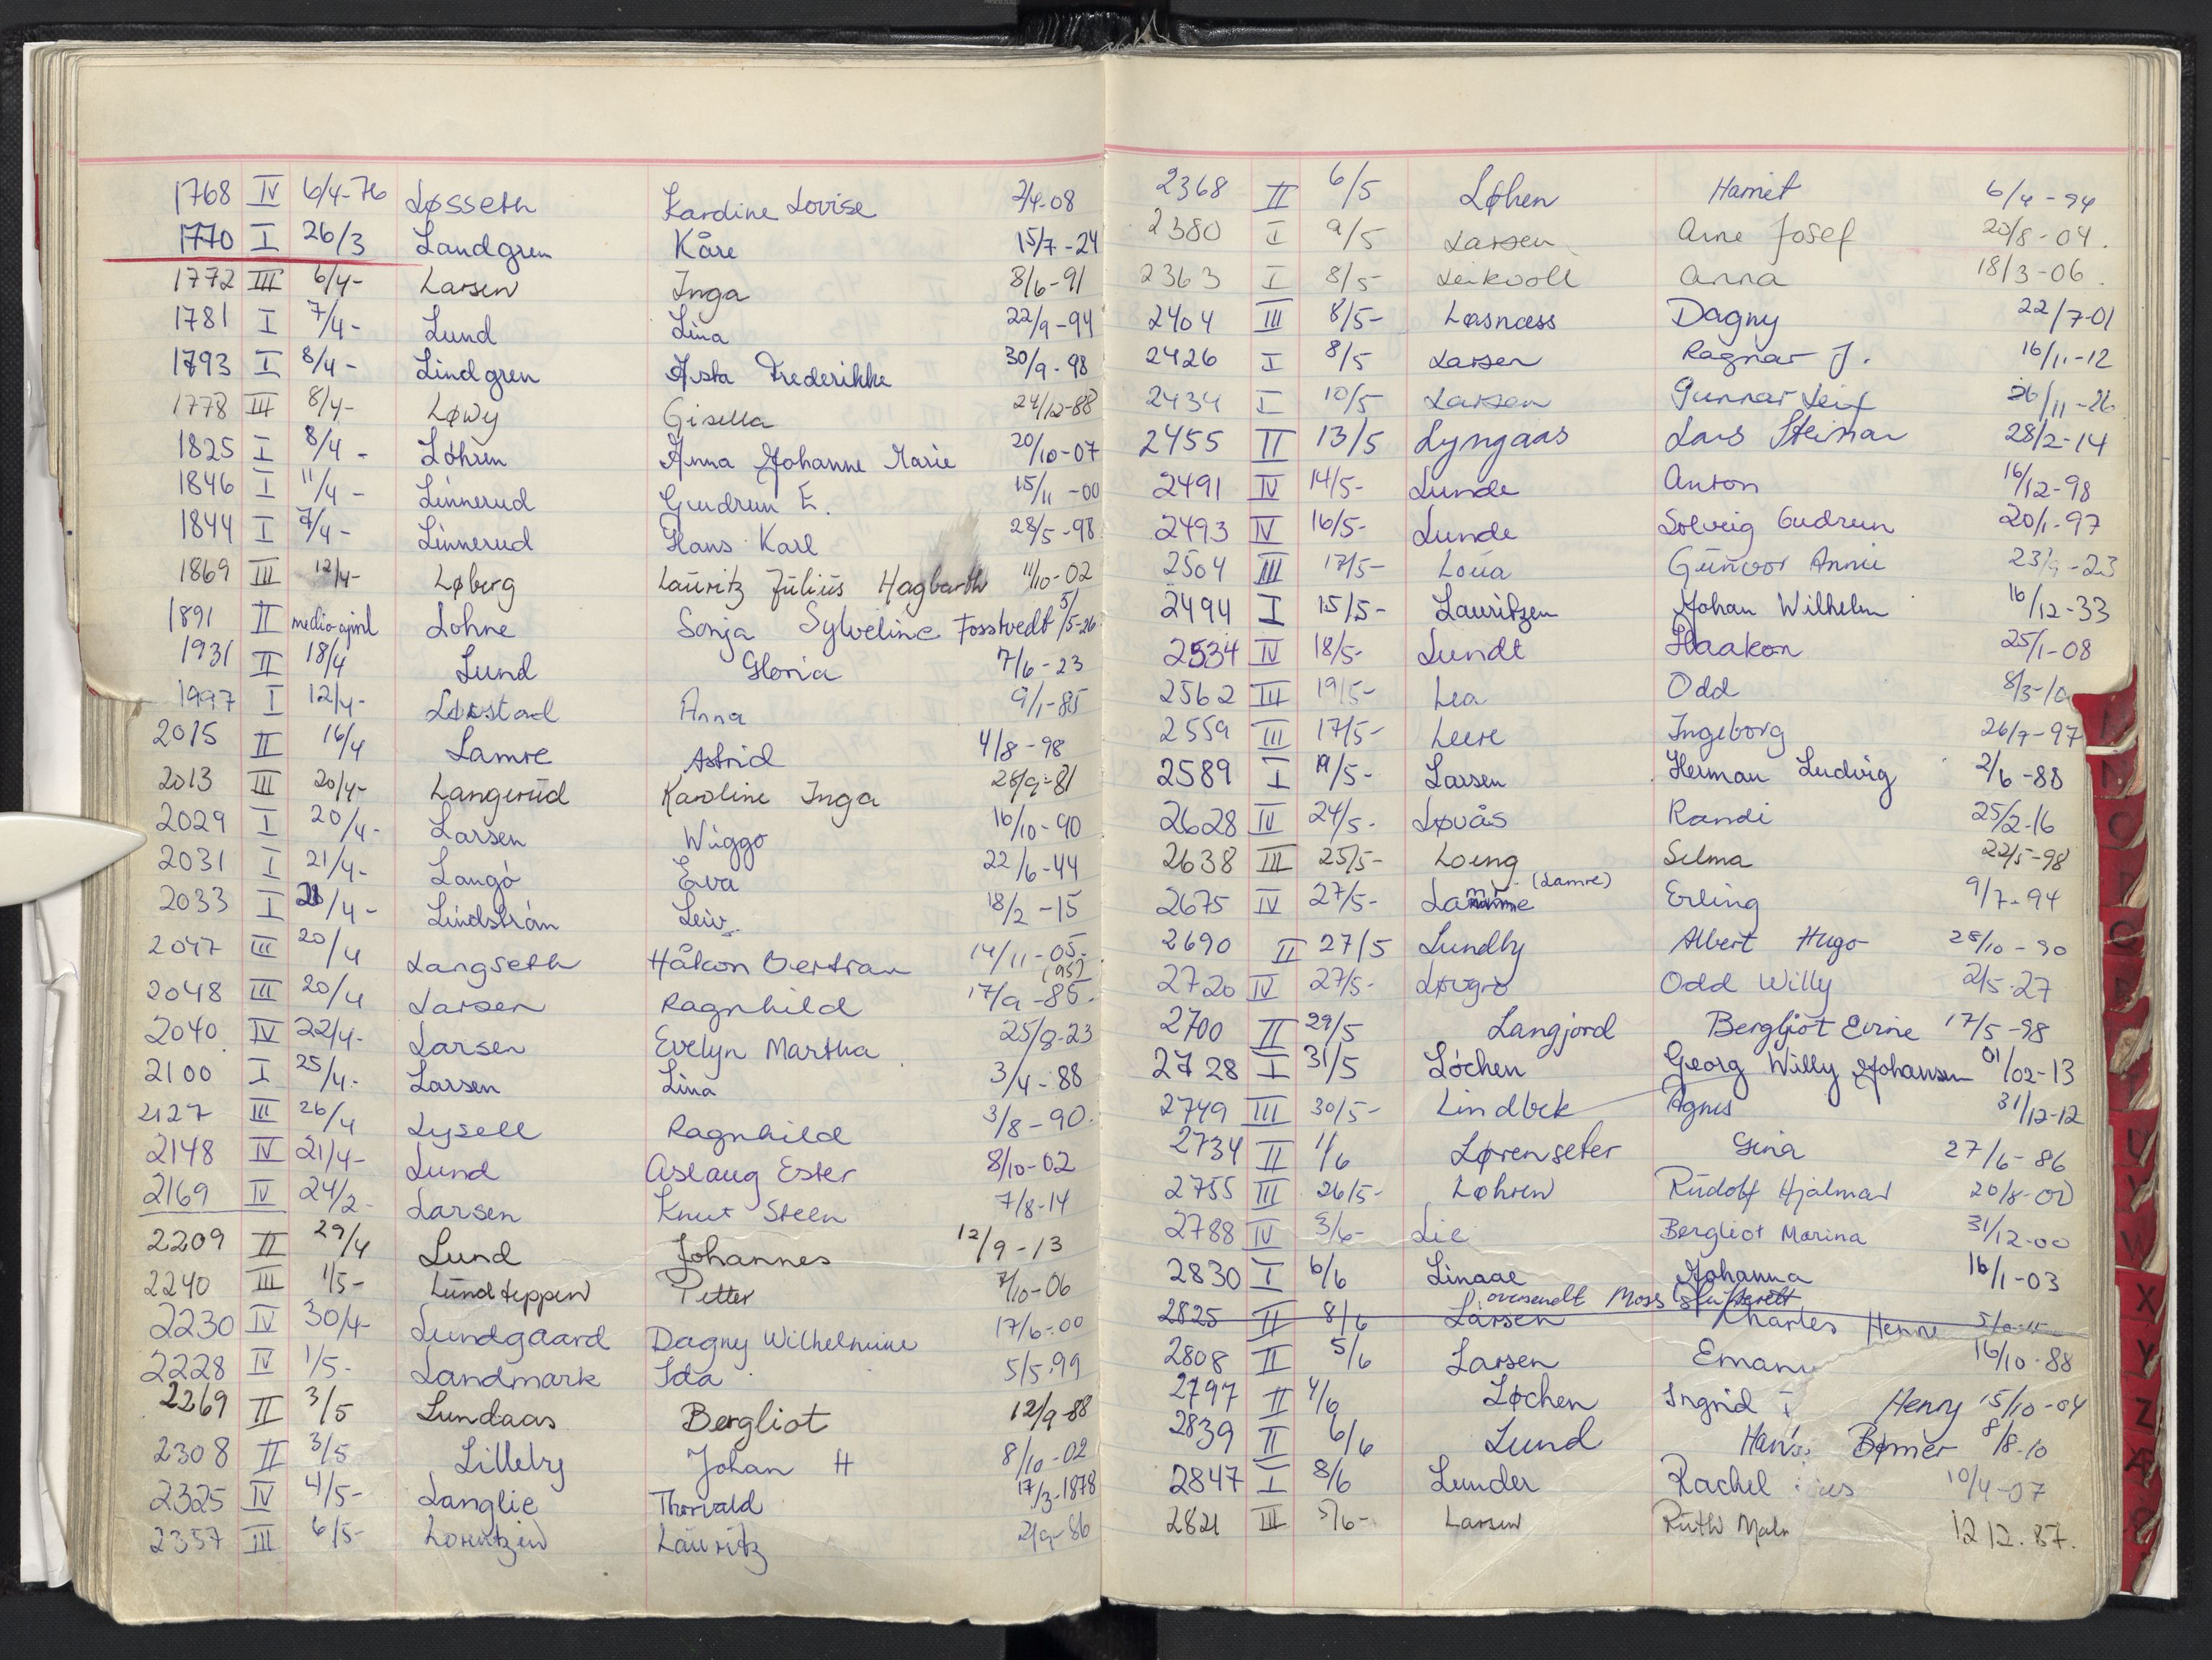 1768 IV 6/4-76 Løsseth Karoline Lovise 2/4-08
1770 I 26/3 Landgren Kåre 15/7-24
1772 III 6/4- Larsen Inga 8/6-91
1781 I 7/4- Lund Lina 22/9-94
1793 I 8/4- Lindgren Asta Frederikke 30/9-98
1778 III 8/4- Løwy Gisella 24/12-88
1825 I 8/4- Löhren Anna Johanne Marie 20/10-07
1846 I 11/4- Linnerud Gudrun E. 15/11-00
1844 I 7/4- Linnerud Hans Karl 28/5-98
1869 III 12/4- Løberg Lauritz Julius Hagbarth 11/10-02
1891 II medio april Lohne Sonja Sylveline Fosstvedt 5/5-26
1931 II 18/4 Lund Gloria 7/6-23
1997 I 12/4- Anna 9/1-85
2015 II 16/4 Lamre Astrid 4/8-98
2013 III 20/4- Langerud Karoline Inga 28/9-81
2029 I 20/4- Larsen Wiggo 16/10-90
2031 I 21/4- Langö Eva 22/6-44
2033 I /4- Lindström Leiv 18/2-15
2047 III 20/4 Langseth Håkon Bertran 14/11-05-
(95)
2048 III 20/4 Larsen Ragnhild 17/9-85-
2040 IV 22/4- Larsen Evelyn Martha 25/8-23
2100 I 25/4- Larsen Lina 3/4-88
2127 III 26/4 Lysell Ragnhild 3/8-90.
2148 IV 21/4- Lund Aslaug Ester 8/10-02
2169 IV 24/2- Larsen Knut Steen 7/8-14
2209 II 29/4 Lund Johannes 12/9-13
2240 III 1/5- Lundteppen Petter 7/10-06
2230 IV 30/4- Lundgaard Dagny Wilhelmine 17/6-00
2228 IV 1/5- Landmark Ida 5/5-99
2269 II 3/5 Lundaas Bergliot 12/9-88
2308 II 3/5 Lilleby Johan H 8/10-02
2325 IV 4/5- Langlie Thorvald 17/3-1878
2357 III 6/5- Lorentzen Lauritz 2/9-86
2368 II 6/5 Løhen Harriet 6/4-94
2380 I 9/5 Larsen Arne Josef 20/8-04.
2363 I 8/5- Leikvoll Anna 18/3-06.
2404 III 8/5- Løsnæss Dagny 22/7-01
2426 I 8/5 Larsen Ragnar J. 16/11-12
2434 I 10/5 Larsen Gunnar Leif 26/11-26
2455 II 13/5 Lyngaas Lars Steinar 28/2-14
2491 IV 14/5- Lunde Anton 16/12-98
2493 IV 16/5- Lunde Solveig Gudrun 20/1-97
2504 III 17/5- Loua Gunvor Annie 23/9-23
2494 I 15/5- Lauritzen Johan Wilhelm 16/12-33
2534 IV 18/5- Lundt Haakon 25/1-08
2562 III 19/5- Lea Odd 8/3-
2559 III 17/5- Leere Ingeborg 26/7-97
2589 I 19/5- Larsen Herman Ludvig 2/6-88
2628 IV 24/5- Løvås Randi 25/2-16
2638 III 25/5- Loeng Selma 22/5-98
2675 IV 27/5- (Lamre) Erling 9/7-94
2690 II 27/5 Lundby Albert Hugo 28/10-90
2720 IV 27/5- Løvgro Odd Willy 2/5-27
2700 II 29/5 Langjord Bergljot Evine 17/5-98
2728 I 31/5 Löchen Georg Willy Johansen 01/02-13
2749 III 30/5- Lindbek Agnes 31/12-12
2734 II 1/6 Lørenseter Gina 27/6-86
2755 III 26/5- Løhren Rudolf Hjalmar 20/8-00
2788 IV 3/6- Lie Bergliot Marina 31/12-00
2830 I 6/6 Linaae Johanna 16/1-03
oversendt Moss skifterett
2825 II 8/6 Larsen Charles Henne
2808 II 5/6 Larsen 16/10-88
2797 II 4/6 Løchen Ingrid Henny 15/10-04
2839 II 6/6 Lund Hans Børner 8/8-10
2847 I 8/6 Lunder Rachel 10/4-07
2821 III 5/6- Larsen Ruth 12 12.87.